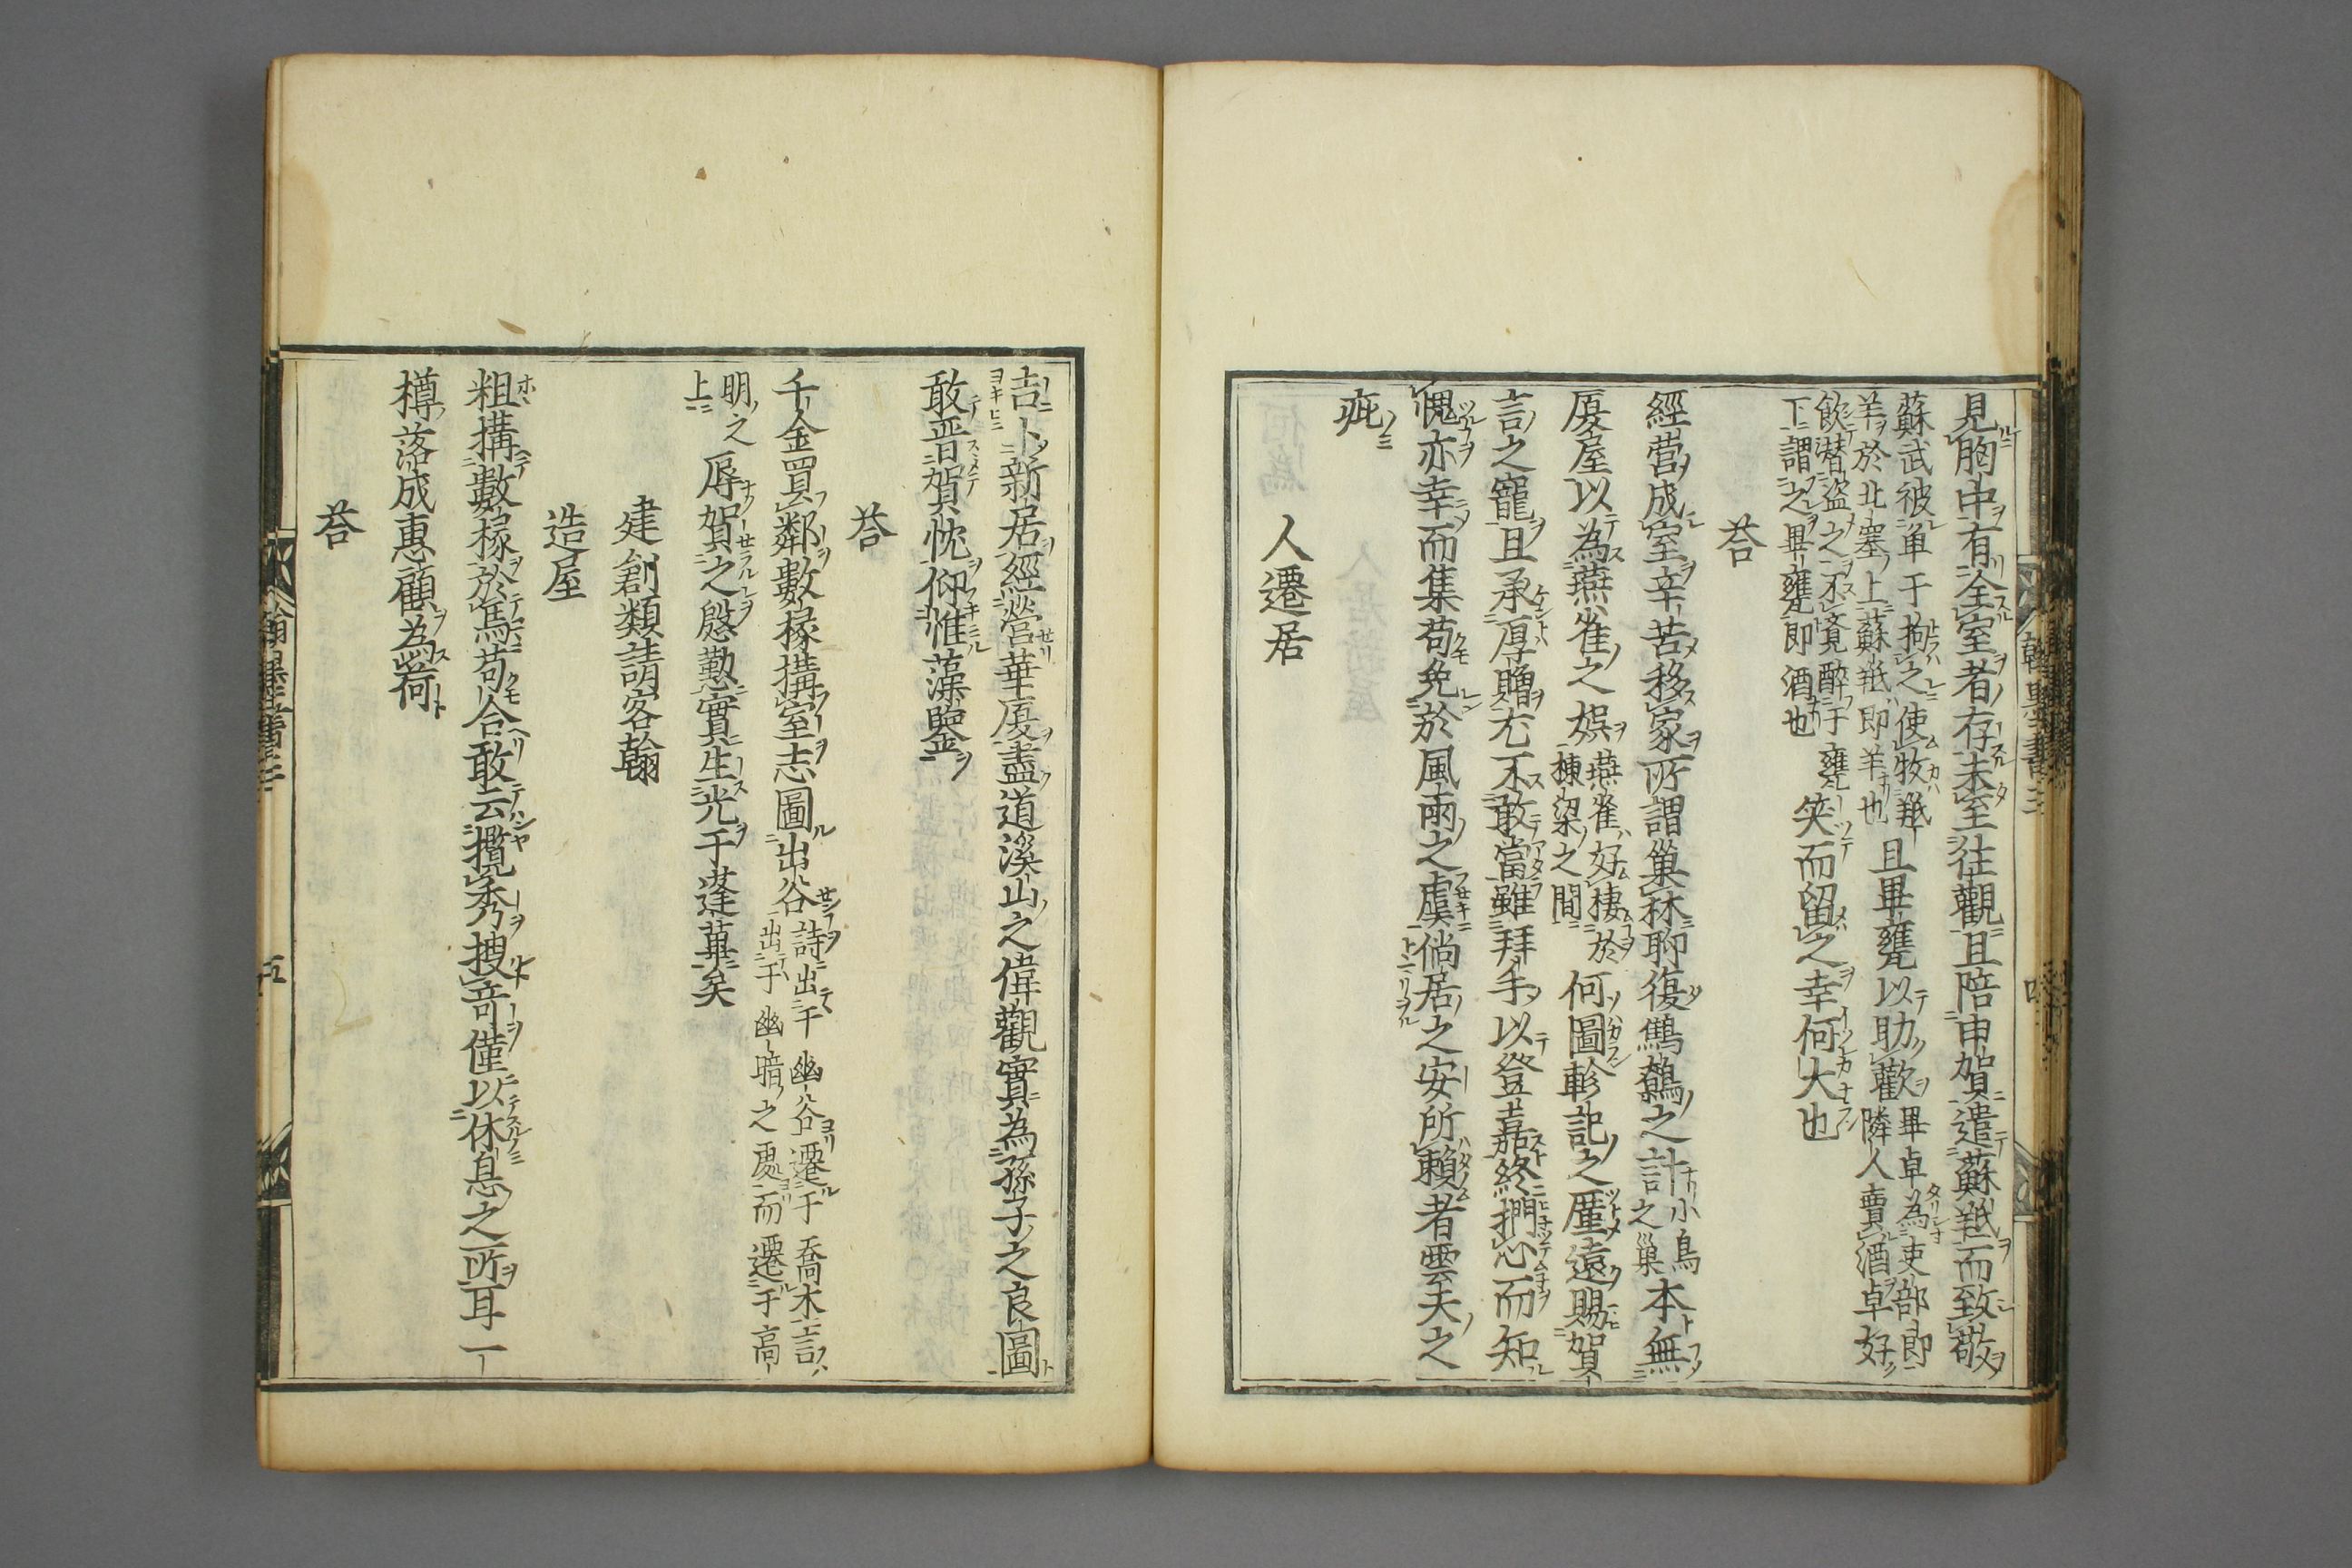 見胸中有全室者存未至往觀且陪申賀遣蘇羝而致敬
蘇武彼単于拘之使牧羝
羊於北塞上蘇羝即羊也
且畢甕以助歡
畢卓為吏部郎
隣人賣酒卓好
飲潜盗之不境醉于甕
下謂之畢甕即酒也
笑而留之幸何大也
荅
經营成室辛苦移家所謂巢林聊復鷦鷯之計
小鳥
之巢
本無
厦屋以為燕雀之娯
燕雀好棲於
棟梁之間
何圖軫記之厪遠賜賀
言之寵且承厚贈尤不敢當雖拜手以登嘉終捫心而知
愧亦幸而集苟免於風雨之虞倘居之安所賴者雲天之
疪
人遷居
吉卜新居經營華厦盡道溪山之偉觀實為孫子之良圖
敢晋賀忱仰惟藻鑒
荅
千金買鄰數椽搆室志圖出谷
詩出于幽谷遷于喬木言
出于幽暗之處而遷于高
明之
上
辱賀之慇懃實生光于蓬蓽矣
建創類請客翰
造屋
粗搆數椽於焉苟合敢云攬秀搜奇僅以休息之所耳一
樽落成惠顧為荷
荅
翰墨書三
五